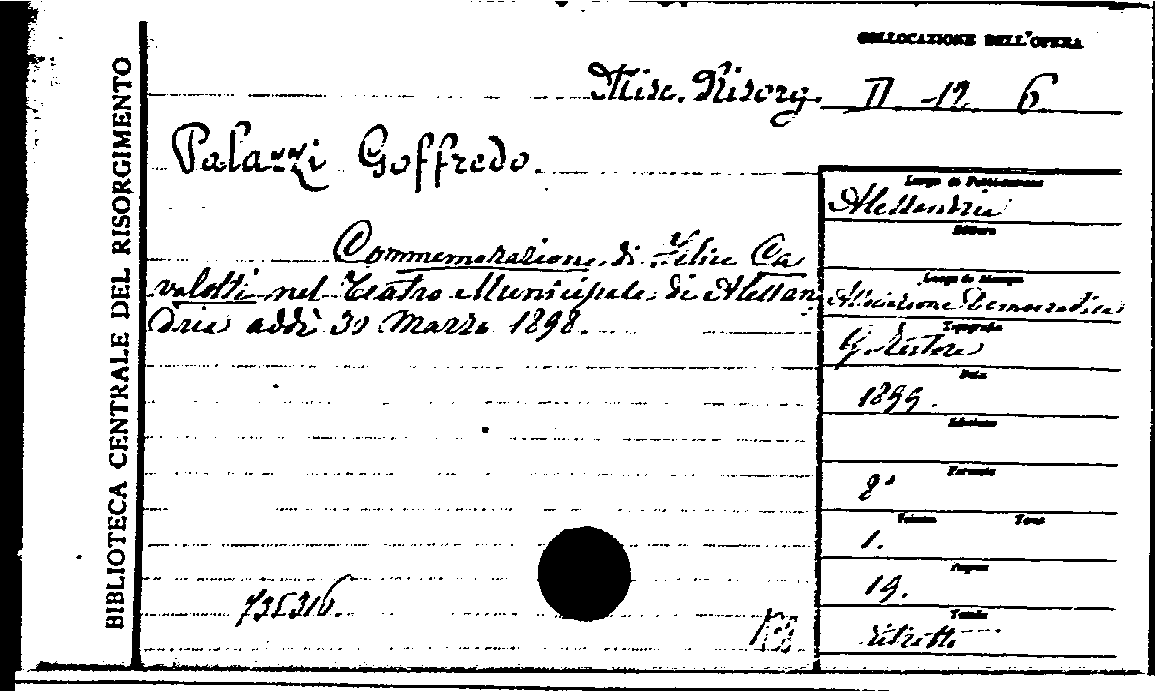 COLLOCAZIONE DELL'OPERA
Misc. Risorg. II -12 6
BIBLIOTECA CENTRALE DEL RISORGIMENTO
Palazzi Goffredo.
Commemorazione di Felice Ca
valotti nel Teatro Municipale di Alessan
dria addì 30 Marzo 1898.
735316.
Luogo di Pubblicazione
Alessandria
Editore
Luogo di Stampa
Associazione Democratica
Tipografia
Data
1899.
Edizione
Formato
8°
Volume Tomo
1.
Pagine
19.
Tavole
ritratto